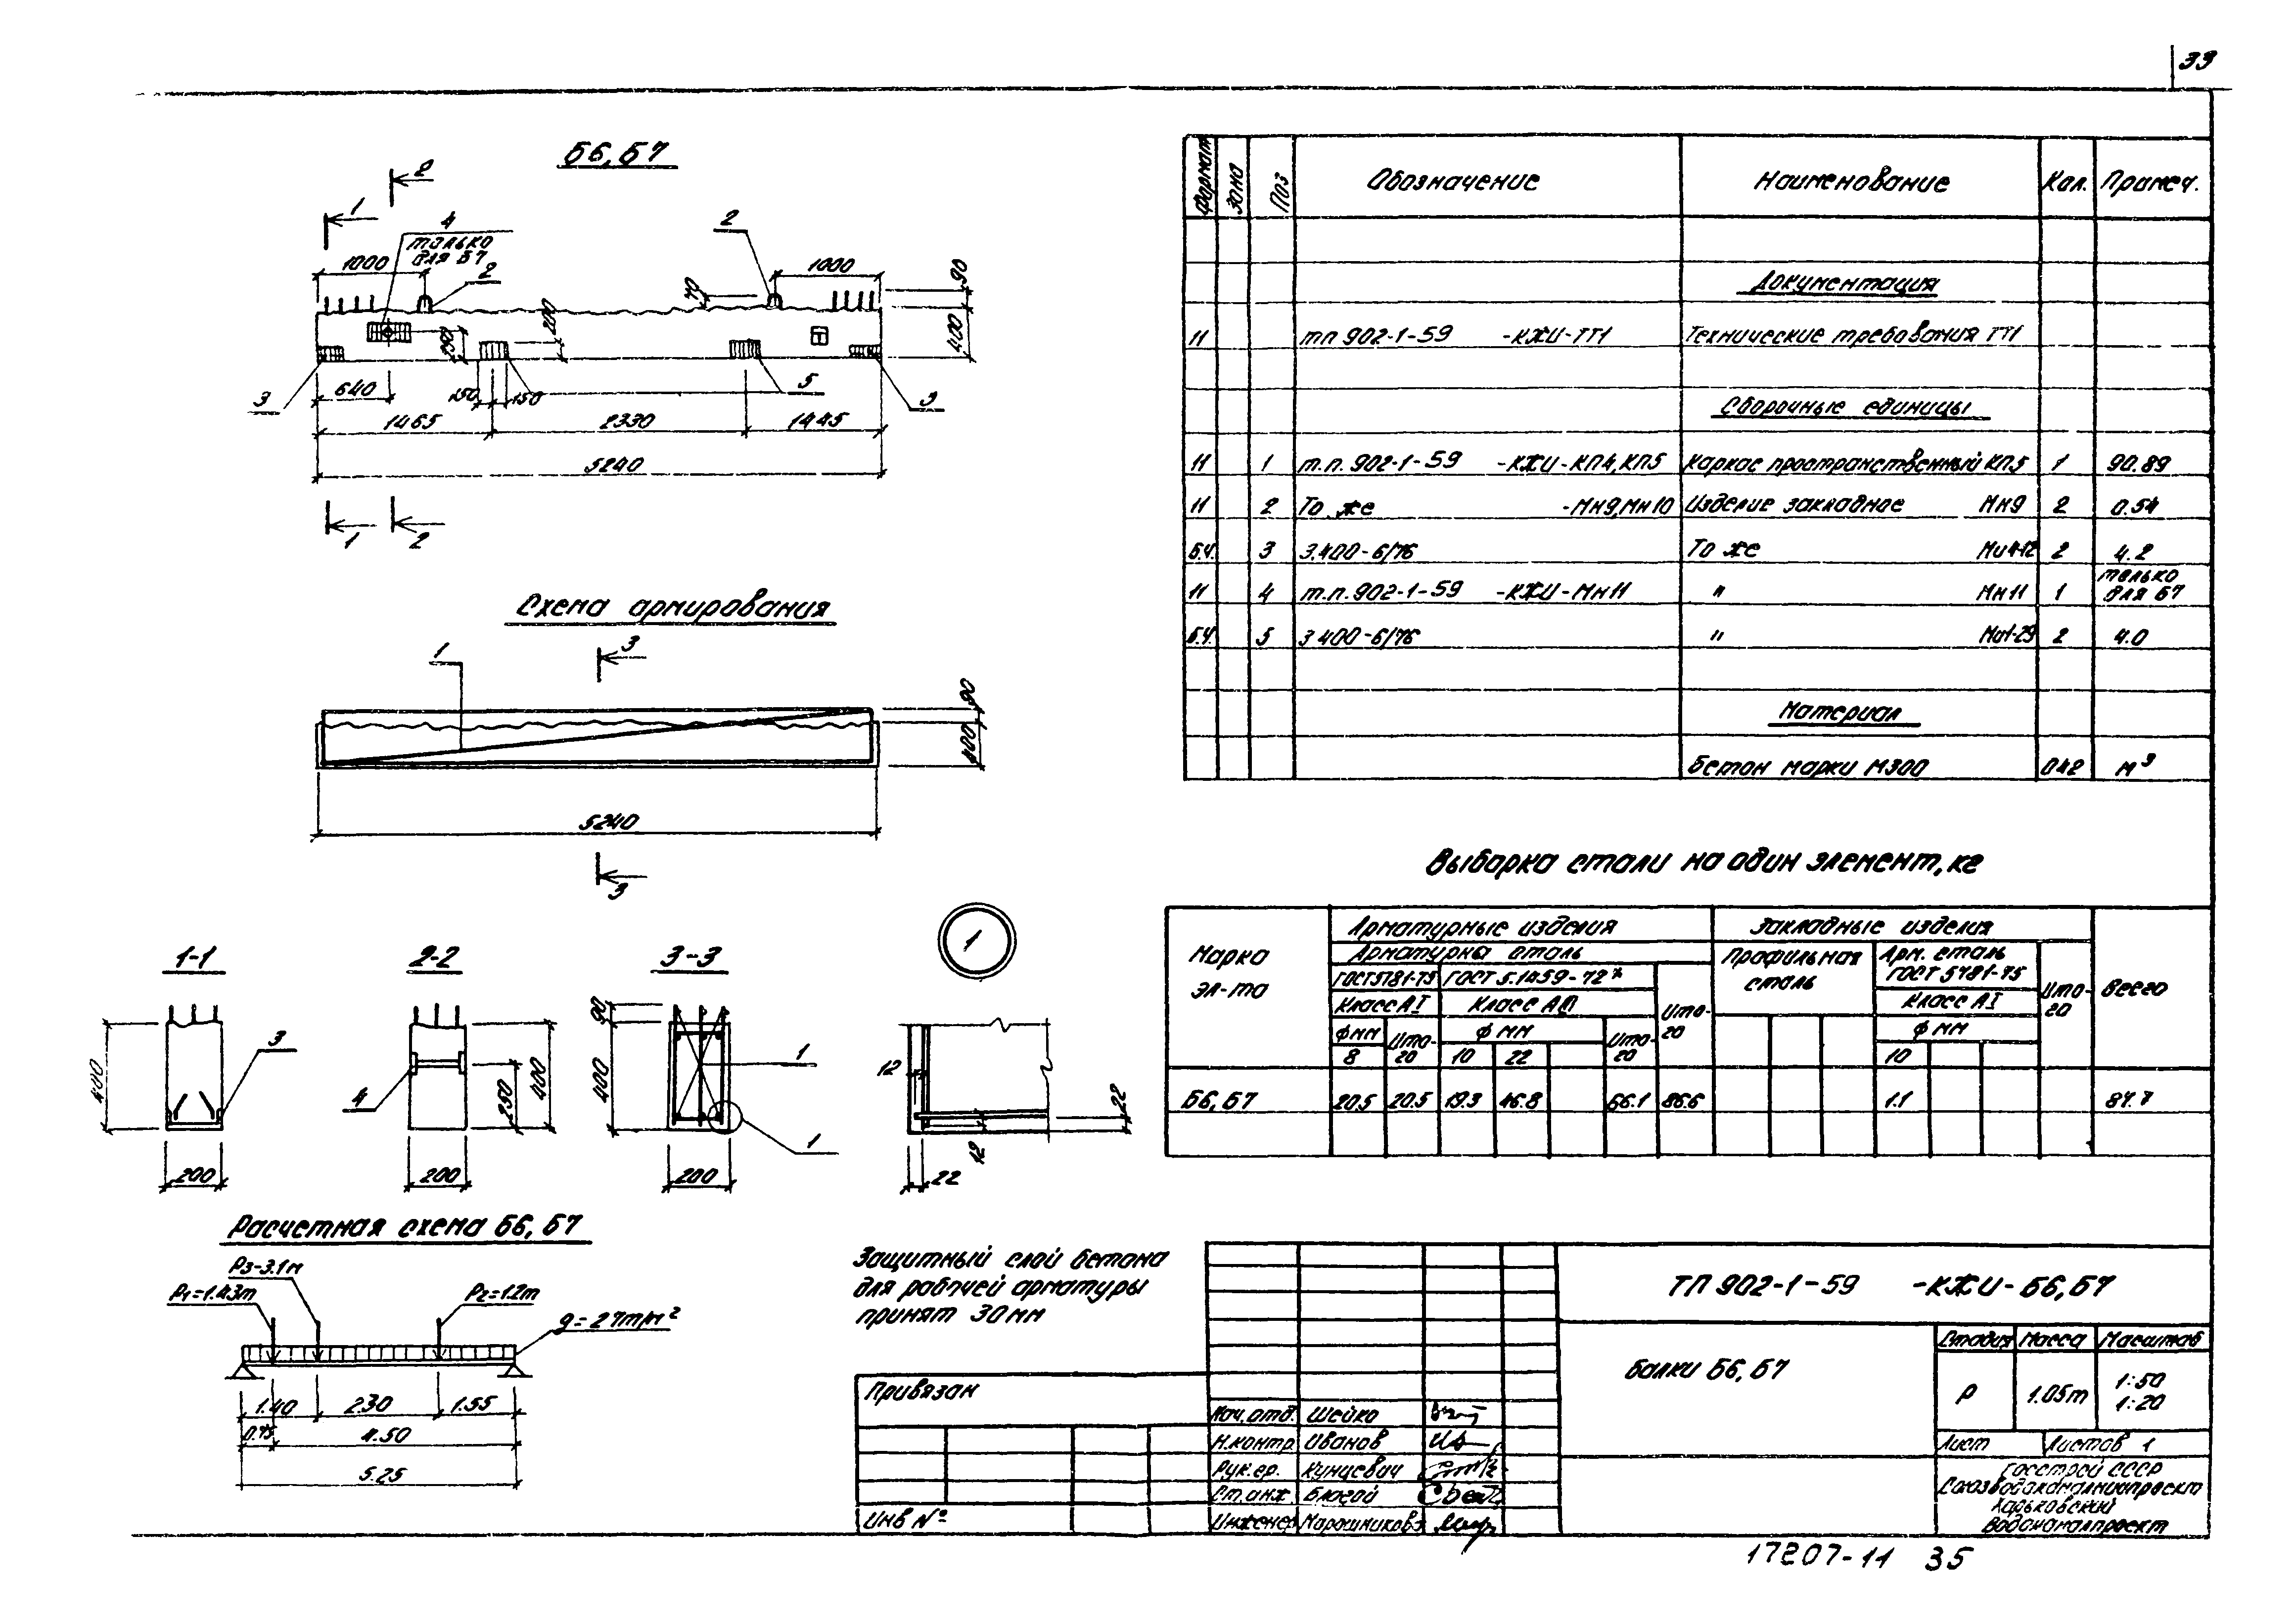 39
Б6, Б7
2
1
4
только
для Б7
2
2
1000
1000
90
70
200
250
400
3
640
150
150
5
3
1465
2330
1445
5240
1
2
Схема армирования
1
3
90
400
5240
3
1-1
2-2
3-3
1
400
3
200
4
250
400
200
90
400
1
1
200
12
12
22
22
Расчетная схема Б6, Б7
P3-3.1м
P1=1.43т
P2=1.2т
g=2 7т/м²
1.40
2.30
1.55
0.75
4.50
5.25
Формат
Зона
Поз
Обозначение
Наименование
Кол.
Примеч.
Документация
11 тп 902-1-59 -КЖИ-ТТ1 Технические требования ТТ1
Сборочные единицы
11 1 т.п. 902-1-59 -КЖИ-КП4, КП5 Каркас пространственный КП5 1 90.89
11 2 То же -Мн9, Мн10 Изделие закладное Мн9 2 0.54
Б.Ч. 3 3.400-6/76 То же Ми4-12 2 4.2
11 4 т.п. 902-1-59 -КЖИ-Мн11 " Мн11 1 только для Б7
Б.Ч. 5 3 400-6/76 " Ми1-29 2 4.0
Материал
Бетон марки М300 0.42 м³
Выборка стали на один элемент, кг
Марка эл-та
Арматурные изделия
Закладные изделия
Всего
Арматурна сталь
Профильная сталь
Арм. сталь ГОСТ 5781-75
Ито-го
ГОСТ5781-75
ГОСТ 5.1459-72*
Ито-го
Класс АI
Класс АIII
Класс АI
Ф мм
Ито-го
Ф мм
Ито-го
Ф мм
8
10
22
10
Б6, Б7 20.5 20.5 19.3 46.8 66.1 86.6 1.1 87.7
Защитный слой бетона
для рабочей арматуры
принят 30мм
Привязан
Инв №
Нач. отд. Шейко
Н. контр Иванов
Рук. гр. Кунцевич
Ст. инж. Благой
Инженер Мирошникова
ТП 902-1-59 -КЖИ-Б6, Б7
Балки Б6, Б7
Стадия Масса Масштаб
Р 1.05т 1:50
1:20
Лист Листов 1
Госстрой СССР
Союзводоканалниипроект
Харьковский
Водоканалпроект
17207-11 35